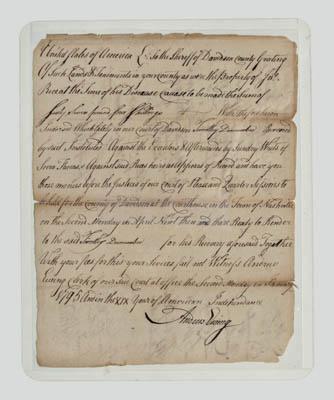 United States of America To the Sheriff of Davidson County Greeting
Of such Lands & Tenements in your county as were the Property of Jas.
at the Time of his Decease Cause to be made the sum of
Forty Seven pound four Shillings
which lately in our County of Davidson Timothy Demumbre Recovered
by said Instituted Against the Executors & Afterwards by Sundry Writs of
Against said as Appears of Record and have you
those monies before the Justices of our County of Pleas and Quarter Sessions to
be held for the County of Davidson at the Courthouse in the Town of Nashville
on the Second Monday in April Next Then and there Ready to Render
to the said Timothy Demumbre for his Recovery aforesaid Together
With your fees for this your Services, fail not Witness Andrew
Ewing Clerk of our said Court at office the Second Monday in January
1795 And in the XIX Year of American Independance
Andrew Ewing